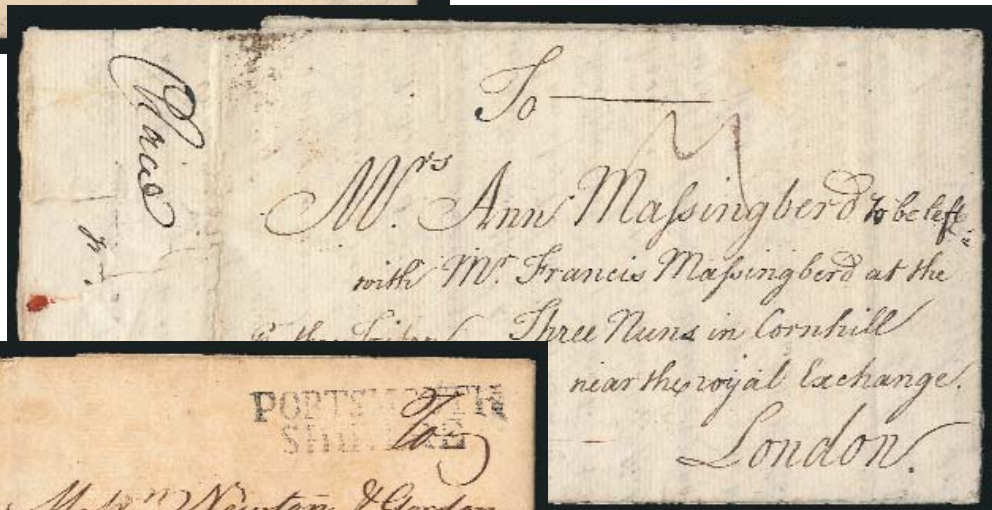 To
Mrs. Ann Maſsingberd to be left
with Mr. Francis Maſsingberd at the
Three Nuns in Cornhill
near the royal Exchange.
London.
PORTSMOUTH
SHIP LRE
To
Newton & Gordon